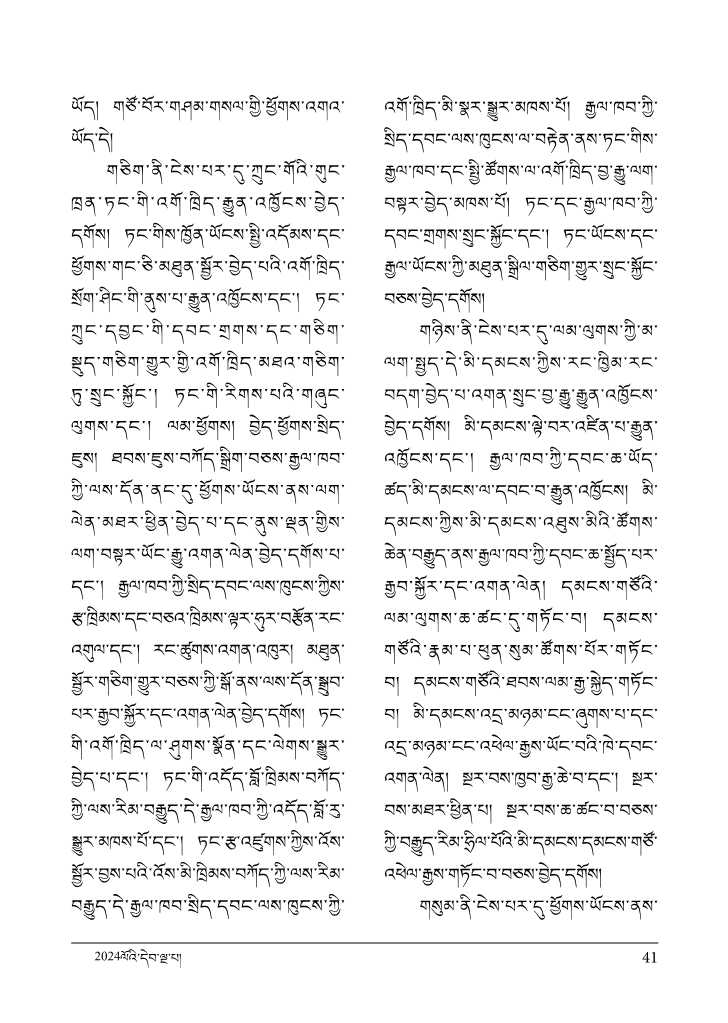 ཡོད། གཙོ་བོར་གཤམ་གསལ་གྱི་ཕྱོགས་འགའ་
ཡོད་དེ།
གཅིག་ནི་ངེས་པར་དུ་ཀྲུང་གོའི་གུང་
ཁྲན་ཏང་གི་འགོ་ཁྲིད་རྒྱུན་འཁྱོངས་བྱེད་
དགོས། ཏང་གིས་ཁྱོན་ཡོངས་སྤྱི་འདོམས་དང་
ཕྱོགས་གང་ཅི་མཐུན་སྦྱོར་བྱེད་པའི་འགོ་ཁྲིད་
སྲོག་ཤིང་གི་ནུས་པ་རྒྱུན་འཁྱོངས་དང་། ཏང་
ཀྲུང་དབྱང་གི་དབང་གྲགས་དང་གཅིག་
སྡུད་གཅིག་གྱུར་གྱི་འགོ་ཁྲིད་མཐའ་གཅིག་
ཏུ་སྲུང་སྐྱོང་། ཏང་གི་རིགས་པའི་གཞུང་
ལུགས་དང་། ལམ་ཕྱོགས། བྱེད་ཕྱོགས་སྲིད་
ཇུས། ཐབས་ཇུས་བཀོད་སྒྲིག་བཅས་རྒྱལ་ཁབ་
ཀྱི་ལས་དོན་ནང་དུ་ཕྱོགས་ཡོངས་ནས་ལག་
ལེན་མཐར་ཕྱིན་བྱེད་པ་དང་ནུས་ལྡན་གྱིས་
ལག་བསྟར་ཡོང་རྒྱུ་འགན་ལེན་བྱེད་དགོས་པ་
དང་། རྒྱལ་ཁབ་ཀྱི་སྲིད་དབང་ལས་ཁུངས་ཀྱིས་
རྩ་ཁྲིམས་དང་བཅའ་ཁྲིམས་ལྟར་ཧུར་བརྩོན་རང་
འགུལ་དང་། རང་ཚུགས་འགན་འཁུར། མཐུན་
སྦྱོར་གཅིག་གྱུར་བཅས་ཀྱི་སྒོ་ནས་ལས་དོན་སྒྲུབ་
པར་རྒྱབ་སྐྱོར་དང་འགན་ལེན་བྱེད་དགོས། ཏང་
གི་འགོ་ཁྲིད་ལ་ཤུགས་སྣོན་དང་ལེགས་སྒྱུར་
བྱེད་པ་དང་། ཏང་གི་འདོད་བློ་ཁྲིམས་བཀོད་
ཀྱི་ལས་རིམ་བརྒྱུད་དེ་རྒྱལ་ཁབ་ཀྱི་འདོད་བློ་རུ་
སྒྱུར་མཁས་པོ་དང་། ཏང་རྩ་འཛུགས་ཀྱིས་འོས་
སྦྱོར་བྱས་པའི་འོས་མི་ཁྲིམས་བཀོད་ཀྱི་ལས་རིམ་
བརྒྱུད་དེ་རྒྱལ་ཁབ་སྲིད་དབང་ལས་ཁུངས་ཀྱི་
འགོ་ཁྲིད་མི་སྣར་སྒྱུར་མཁས་པོ། རྒྱལ་ཁབ་ཀྱི་
སྲིད་དབང་ལས་ཁུངས་ལ་བརྟེན་ནས་ཏང་གིས་
རྒྱལ་ཁབ་དང་སྤྱི་ཚོགས་ལ་འགོ་ཁྲིད་བྱ་རྒྱུ་ལག་
བསྟར་བྱེད་མཁས་པོ། ཏང་དང་རྒྱལ་ཁབ་ཀྱི་
དབང་གྲགས་སྲུང་སྐྱོང་དང་། ཏང་ཡོངས་དང་
རྒྱལ་ཡོངས་ཀྱི་མཐུན་སྒྲིལ་གཅིག་གྱུར་སྲུང་སྐྱོང་
བཅས་བྱེད་དགོས།
གཉིས་ནི་ངེས་པར་དུ་ལམ་ལུགས་ཀྱི་མ་
ལག་སྤྱད་དེ་མི་དམངས་ཀྱིས་རང་ཁྱིམ་རང་
བདག་བྱེད་པ་འགན་སྲུང་བྱ་རྒྱུ་རྒྱུན་འཁྱོངས་
བྱེད་དགོས། མི་དམངས་ལྟེ་བར་འཛིན་པ་རྒྱུན་
འཁྱོངས་དང་། རྒྱལ་ཁབ་ཀྱི་དབང་ཆ་ཡོད་
ཚད་མི་དམངས་ལ་དབང་བ་རྒྱུན་འཁྱོངས། མི་
དམངས་ཀྱིས་མི་དམངས་འཐུས་མིའི་ཚོགས་
ཆེན་བརྒྱུད་ནས་རྒྱལ་ཁབ་ཀྱི་དབང་ཆ་སྤྱོད་པར་
རྒྱབ་སྐྱོར་དང་འགན་ལེན། དམངས་གཙོའི་
ལམ་ལུགས་ཆ་ཚང་དུ་གཏོང་བ། དམངས་
གཙོའི་རྣམ་པ་ཕུན་སུམ་ཚོགས་པོར་གཏོང་
བ། དམངས་གཙོའི་ཐབས་ལམ་རྒྱ་སྐྱེད་གཏོང་
བ། མི་དམངས་འདྲ་མཉམ་ངང་ཞུགས་པ་དང་
འདྲ་མཉམ་ངང་འཕེལ་རྒྱས་ཡོང་བའི་ཁེ་དབང་
འགན་ལེན། སྔར་བས་ཁྱབ་རྒྱ་ཆེ་བ་དང་། སྔར་
བས་མཐར་ཕྱིན་པ། སྔར་བས་ཆ་ཚང་བ་བཅས་
ཀྱི་བརྒྱུད་རིམ་ཧྲིལ་པོའི་མི་དམངས་དམངས་གཙོ་
འཕེལ་རྒྱས་གཏོང་བ་བཅས་བྱེད་དགོས།
གསུམ་ནི་ངེས་པར་དུ་ཕྱོགས་ཡོངས་ནས་
2024ལོའི་དེབ་ལྔ་པ།
41